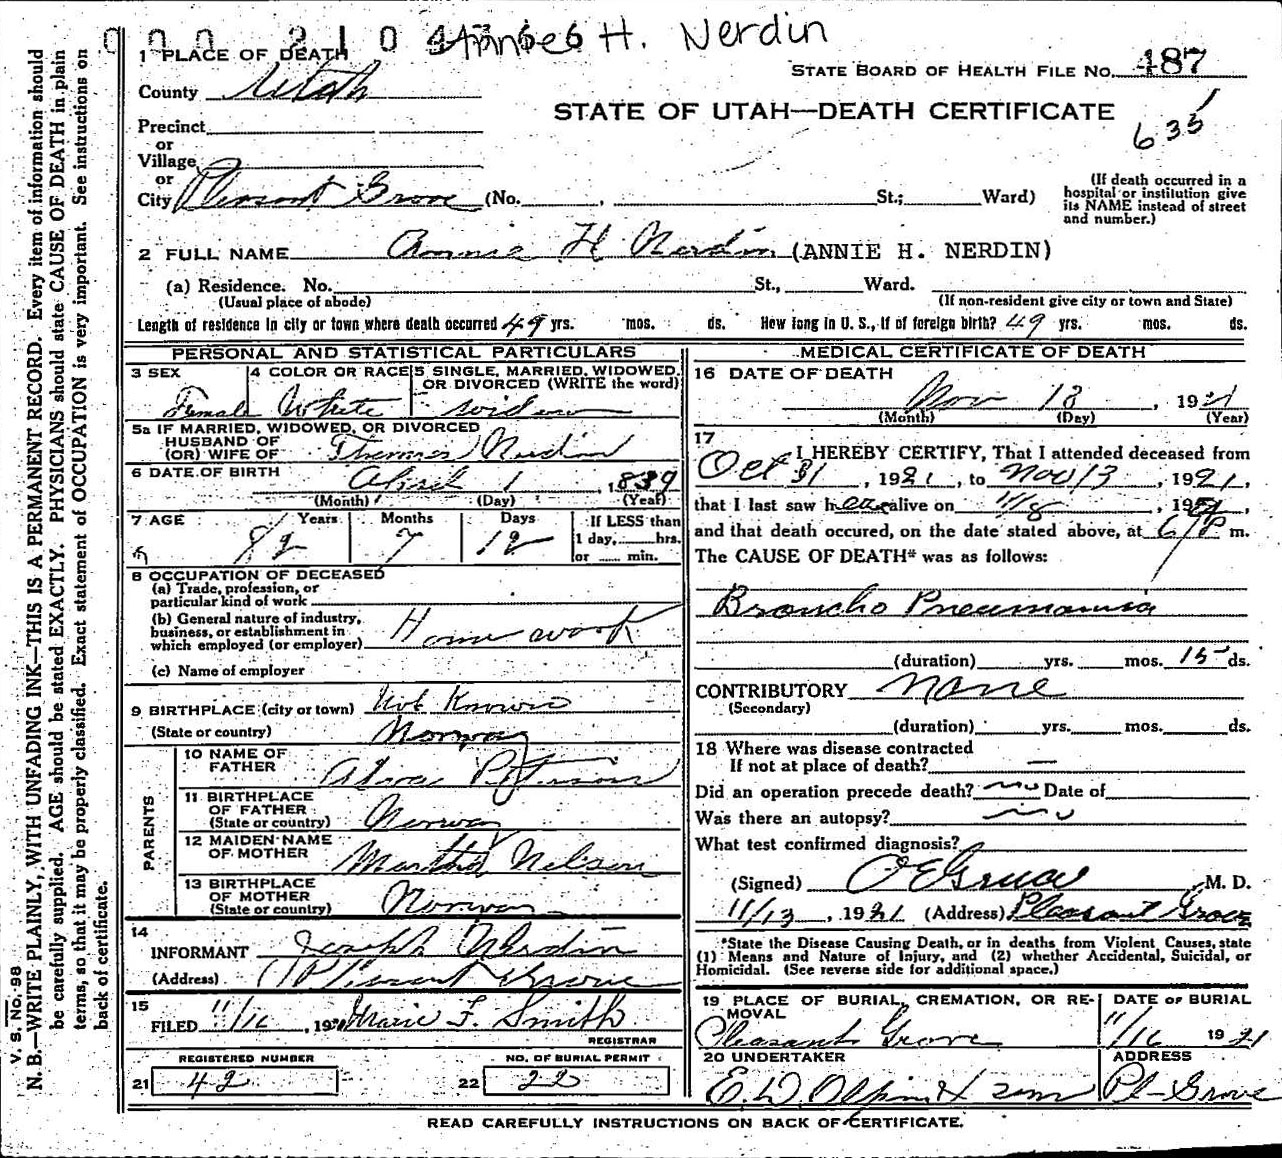 000 210 Annie H. Nerdin
1 PLACE OF DEATH
STATE BOARD OF HEALTH FILE NO. 487
County Utah
STATE OF UTAH—DEATH CERTIFICATE
635
Precinct
or
Village
or
City Pleasant Grove (No. , St.; Ward)
(If death occurred in a
hospital or institution give
its NAME instead of street
and number.)
2 FULL NAME Annie H Nerdin (ANNIE H. NERDIN)
(a) Residence. No. St., Ward.
(Usual place of abode) (If non-resident give city or town and State)
Length of residence in city or town where death occurred 49 yrs. mos. ds. How long in U. S., if of foreign birth? 49 yrs. mos. ds.
PERSONAL AND STATISTICAL PARTICULARS
3 SEX
Female
4 COLOR OR RACE
White
5 SINGLE, MARRIED, WIDOWED,
OR DIVORCED (WRITE the word)
widow
5a IF MARRIED, WIDOWED, OR DIVORCED
HUSBAND OF
(OR) WIFE OF Thomas Nerdin
6 DATE OF BIRTH April 1, 1839
(Month) (Day) (Year)
7 AGE Years Months Days
82 7 12
If LESS than
1 day, hrs.
or min.
8 OCCUPATION OF DECEASED
(a) Trade, profession, or
particular kind of work
(b) General nature of industry,
business, or establishment in
which employed (or employer) Home work
(c) Name of employer
9 BIRTHPLACE (city or town) Not Known
(State or country) Norway
PARENTS
10 NAME OF
FATHER Peterson
11 BIRTHPLACE
OF FATHER
(State or country) Norway
12 MAIDEN NAME
OF MOTHER Martha Nelson
13 BIRTHPLACE
OF MOTHER
(State or country) Norway
14
INFORMANT Joseph Nerdin
(Address) Pleasant Grove
15
FILED 11/16, 192 Marie F. Smith
REGISTRAR
REGISTERED NUMBER
21 42
NO. OF BURIAL PERMIT
22 22
MEDICAL CERTIFICATE OF DEATH
16 DATE OF DEATH
Nov 13, 1921
(Month) (Day) (Year)
17
I HEREBY CERTIFY, That I attended deceased from
Oct 31, 1921, to Nov 13, 1921,
that I last saw her alive on 11/8, 1921,
and that death occured, on the date stated above, at 6 P m.
The CAUSE OF DEATH* was as follows:
Broncho Pneumonia
(duration) yrs. mos. 15 ds.
CONTRIBUTORY None
(Secondary)
(duration) yrs. mos. ds.
18 Where was disease contracted
If not at place of death? —
Did an operation precede death? no Date of
Was there an autopsy? no
What test confirmed diagnosis?
(Signed) M. D.
11/13, 1921 (Address) Pleasant Grove
*State the Disease Causing Death, or in deaths from Violent Causes, state
(1) Means and Nature of Injury, and (2) whether Accidental, Suicidal, or
Homicidal. (See reverse side for additional space.)
19 PLACE OF BURIAL, CREMATION, OR RE-
MOVAL
Pleasant Grove
DATE OF BURIAL
11/16 1921
20 UNDERTAKER
E. D. Olpin & sons
ADDRESS
Pl-Grove
READ CAREFULLY INSTRUCTIONS ON BACK OF CERTIFICATE.
V. S. No. 98
N. B.—WRITE PLAINLY, WITH UNFADING INK—THIS IS A PERMANENT RECORD. Every item of information should
be carefully supplied. AGE should be stated EXACTLY. PHYSICIANS should state CAUSE OF DEATH in plain
terms, so that it may be properly classified. Exact statement of OCCUPATION is very important. See instructions on
back of certificate.